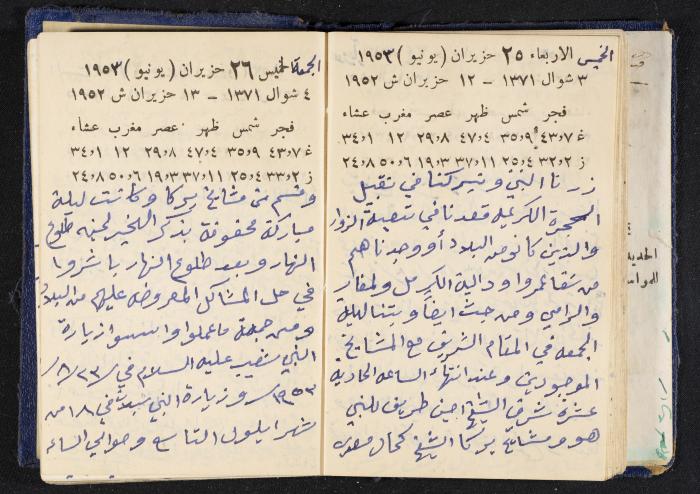 الخميس الاربعاء ٢٥ حزيران (يونيو) ١٩٥٣
٣ شوال ١٣٧١ - ١٢ حزيران ش ١٩٥٢
فجر شمس ظهر عصر مغرب عشاء
غ ٧و٤٣ ٩و٣٥ ٤و٤٧ ٨و٢٩ ١٢ ١و٣٤
ز ٢و٣٢ ٤و٢٥ ١١و٣٧ ٣و١٩ ٦و٥٠ ٨و٢٤
زرنا النبي وتبركنا في تقبيل
الحجرة الكريمه قعدنا في الزوار
والذين كانو من البلاد أو وجدناهم
من شفاعمرو ودالية الكرمل والمغار
والرامي ومن حيث ايضاً وبتنا ليلة
الجمعه في المقام الشريف مع المشايخ
الموجودين وعند انتهاء الساعه الحاديه
عشرة شرف الشيخ امين طريف للنبي
هو ومشايخ يركا الشيخ كمال معدي
الجمعة الخميس ٢٦ حزيران (يونيو) ١٩٥٣
٤ شوال ١٣٧١ - ١٣ حزيران ش ١٩٥٢
فجر شمس ظهر عصر مغرب عشاء
غ ٧و٤٣ ٩و٣٥ ٤و٤٧ ٨و٢٩ ١٢ ١و٣٤
ز ٢و٣٣ ٤و٢٥ ١١و٣٧ ٣و١٩ ٦و٥٠ ٨و٢٤
وقسم من مشايخ يركا وكانت ليلة
مباركة محفوفة بذكر الخير لحينه طلوع
النهار وبعد طلوع النهار باشروا
في حل المشاكل المعروضه عليهم من البلاد
ومن جملة ما عملوا واسسوا زيارة
النبي شعيب عليه السلام في ٢٣/٨/
١٩٥٣ وزيارة النبي سبلان في ١٨ من
شهر ايلول التاسع وحوالي الساعه